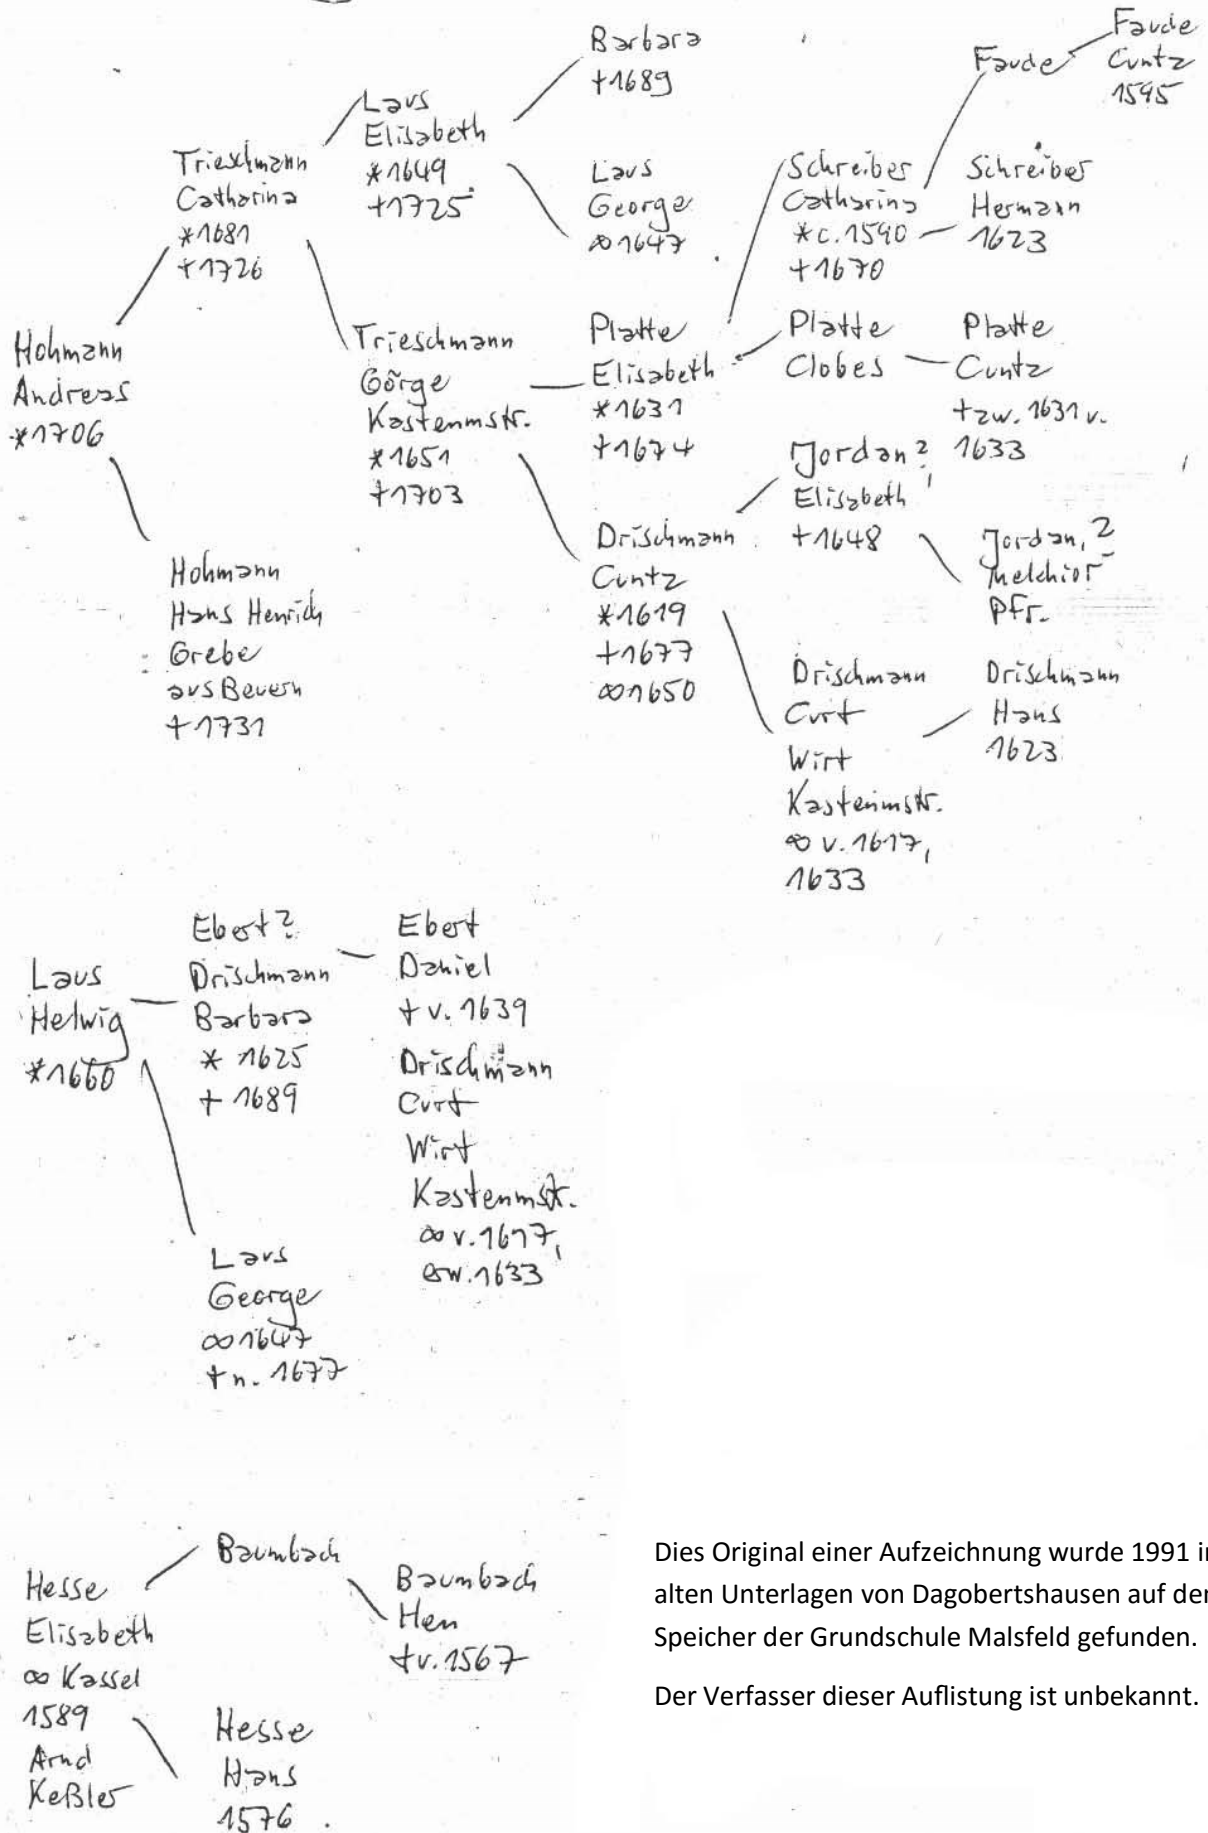 Hohmann
Andreas
*1706
Trieschmann
Catharina
*1681
+1726
Hohmann
Hans Henrich
Grebe
aus Beuern
+1731
Laus
Elisabeth
*1649
+1725
Trieschmann
Görge
Kastenmstr.
*1651
+1703
Barbara
+1689
Laus
George
∞1647
Platte
Elisabeth
*1631
+1674
Drischmann
Cuntz
*1619
+1677
∞1650
Schreiber
Catharina
*c.1590
+1670
Platte
Clobes
Jordan?,
Elisabeth
+1648
Drischmann
Curt
Wirt
Kastenmstr.
∞ v.1617,
1633
Faude
Schreiber
Hermann
1623
Platte
Cuntz
+zw. 1631 u.
1633
Jordan,?
Melchior
Pfr.
Drischmann
Hans
1623
Faude
Cuntz
1595
Laus
Helwig
*1660
Ebert?
Drischmann
Barbara
* 1625
+ 1689
Laus
George
∞1647
+n. 1677
Ebert
Daniel
+ v. 1639
Drischmann
Curt
Wirt
Kastenmstr.
∞ v.1617,
erw.1633
Hesse
Elisabeth
∞ Kassel
1589
Arnd
Keßler
Baumbach
Hesse
Hans
1576
Baumbach
Hen
+v.1567
Dies Original einer Aufzeichnung wurde 1991 in
alten Unterlagen von Dagobertshausen auf der
Speicher der Grundschule Malsfeld gefunden.
Der Verfasser dieser Auflistung ist unbekannt.